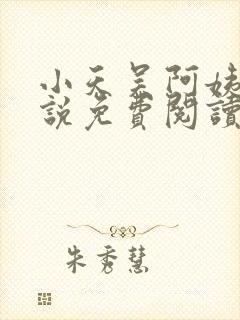 小天吴阿姨
說免費閱讀
朱秀慧